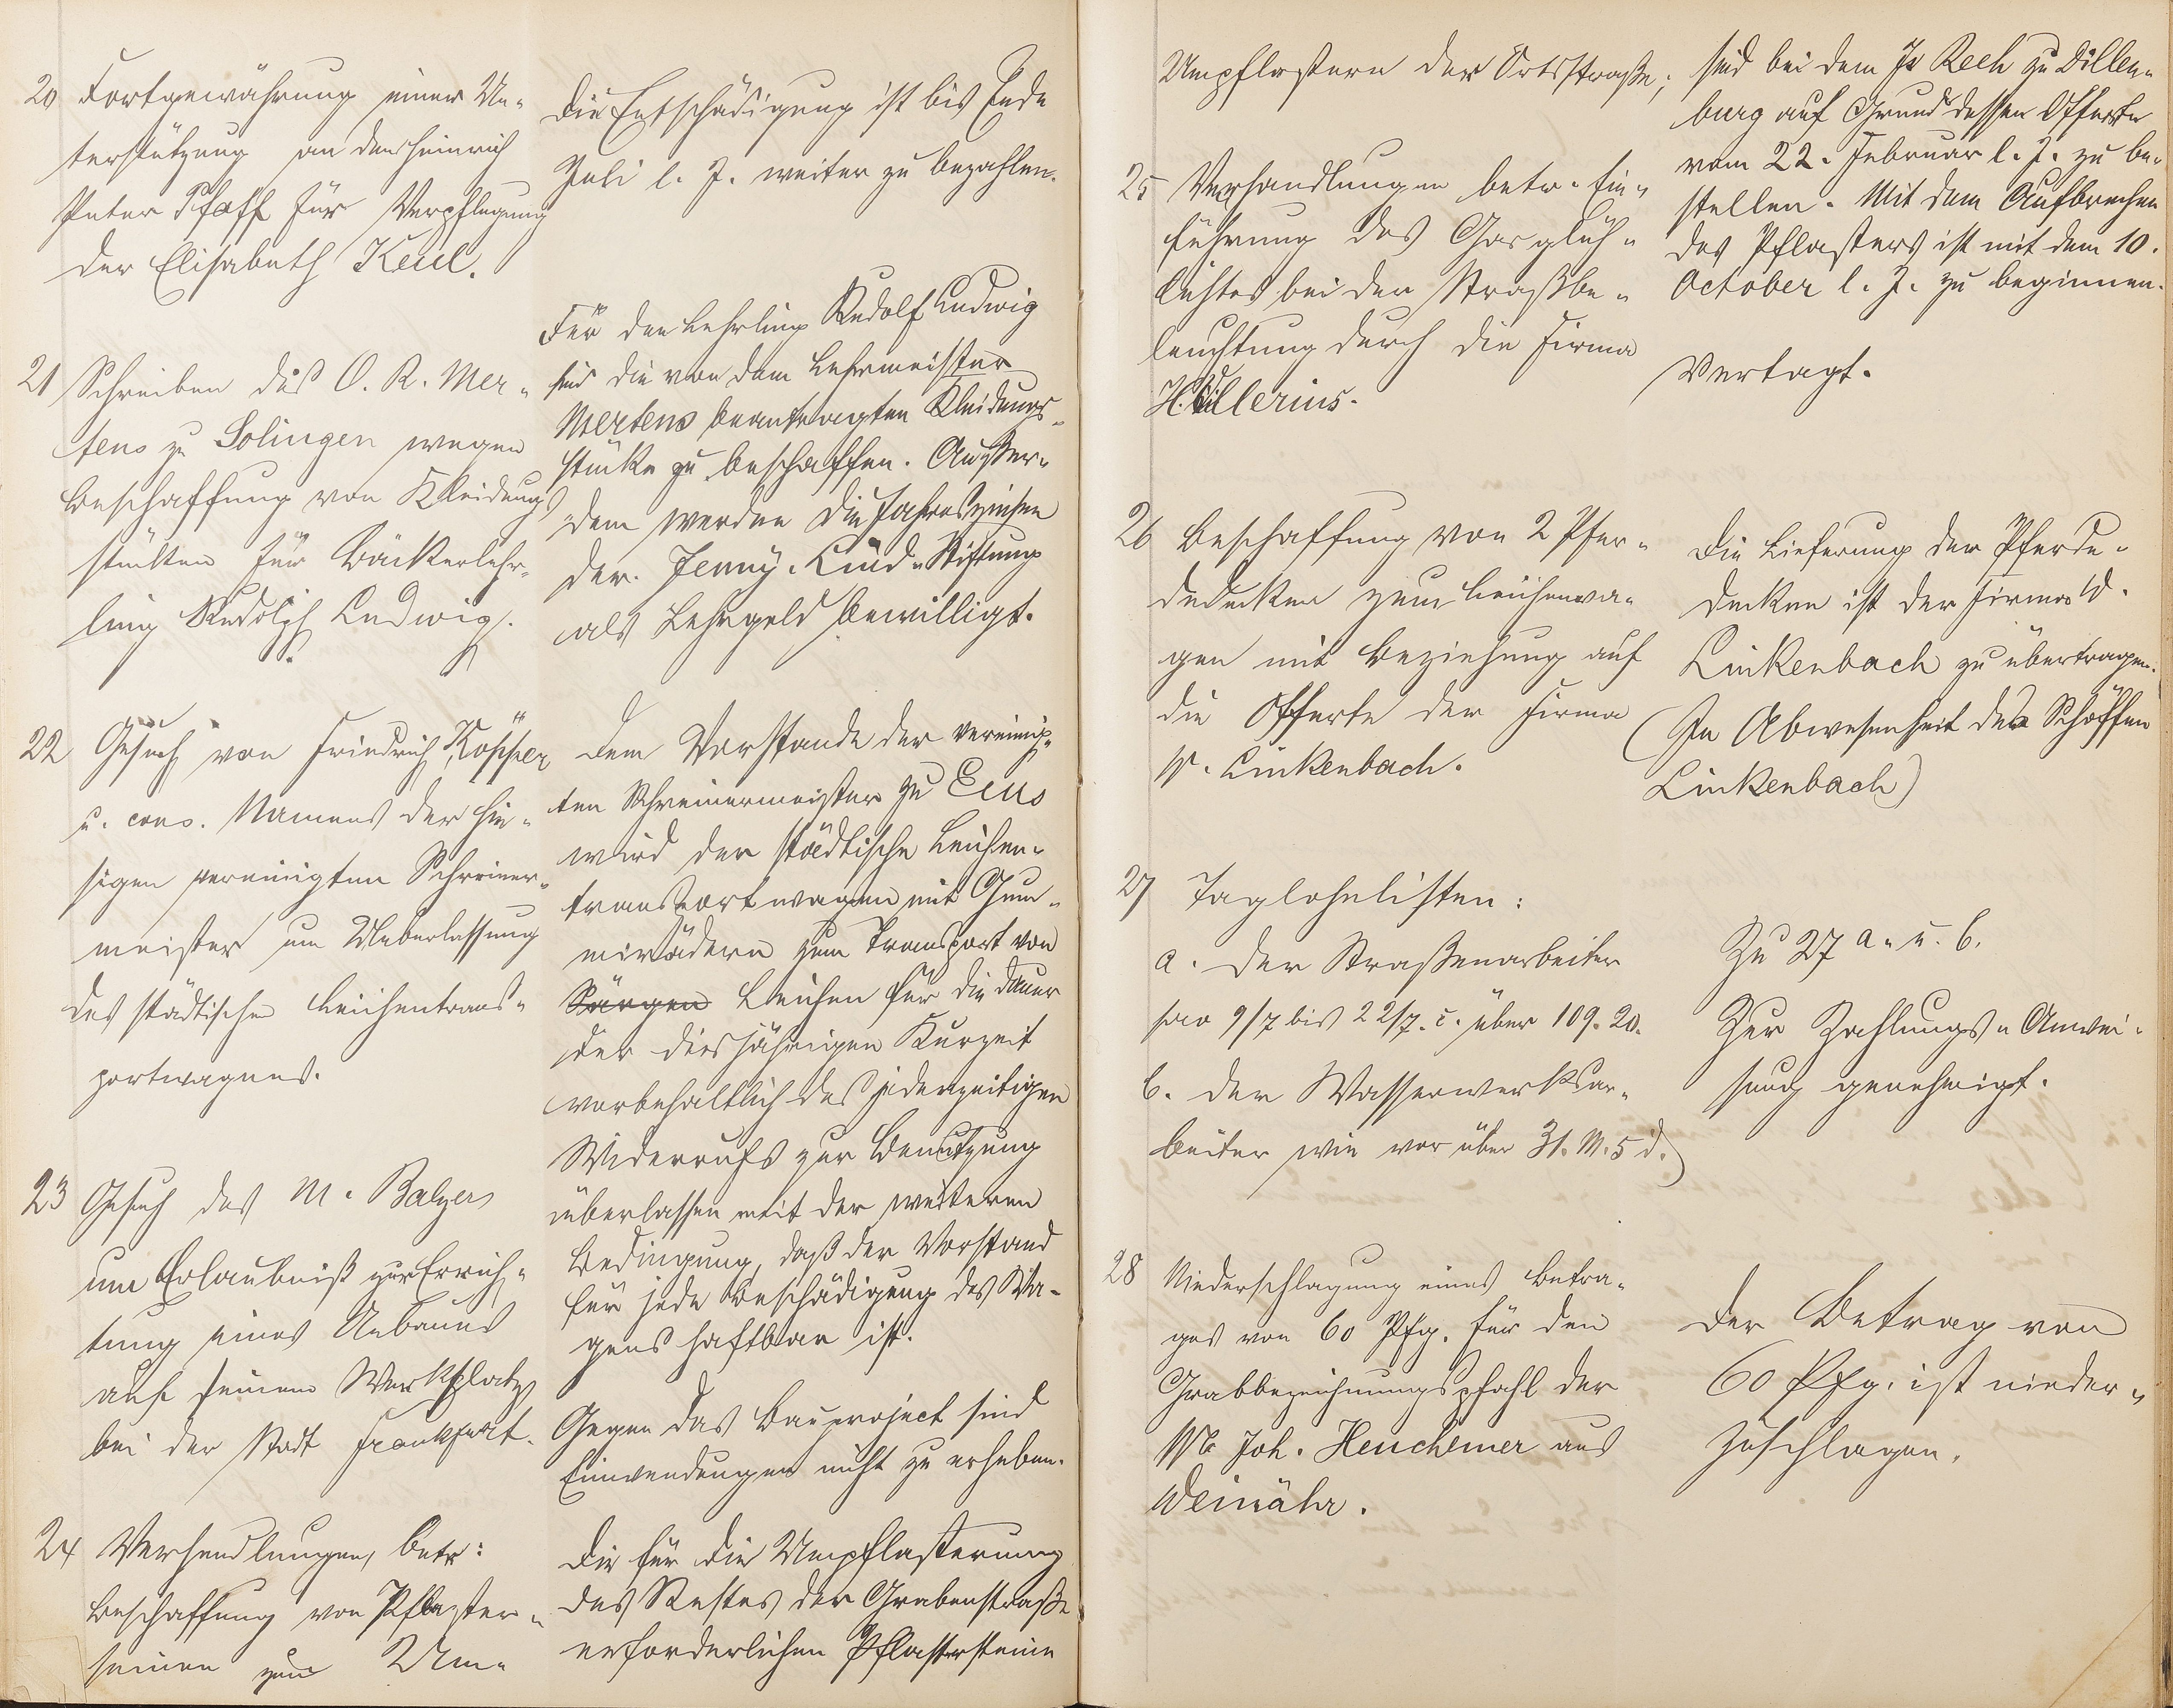 20 Fortgewährung einer Un-
terstützung an den Heinrich
Peter Pfaff für Verpflegung
der Elisabeth Keul.
Die Entschädigung ist bis Ende
Juli l. J. weiter zu bezahlen.
21 Schreiben des O. R. Mer-
tens zu Solingen wegen
Beschaffung von Kleidungs
stücken für Bäckerlehr-
ling Rudolph Ludwig.
Für den Lehrling Rudolf Ludwig
sind die von dem Lehrmeister
Mertens beantragten Kleidungs-
stücke zu beschaffen. Außer-
dem werden die Jahreszinsen
der Jenny-Lind-Stiftung
als Lehrgeld bewilligt.
22 Gesuch von Friedrich Köpper
u. cons. Namens der hie-
sigen vereinigten Schreiner-
meister um Ueberlassung
des städtischen Leichentrans-
portwagens.
Dem Vorstande der vereinig-
ten Schreinermeister zu Ems
wird der städtische Leichen-
transportwagen mit Gum-
mirädern zum Transport von
Särgen Leichen für die Dauer
der diesjährigen Kurzeit
vorbehaltlich des jederzeitigen
Widerrufs zur Benutzung
überlassen mit der weiteren
Bedingung, daß der Vorstand
für jede Beschädigung des Wa-
gens haftbar ist.
23 Gesuch des M. Balzers
um Erlaubniß zur Errich-
tung eines Anbaues
auf seinem Werkplatz
bei der Stadt Frankfurt.
Gegen das Bauproject sind
Einwendungen nicht zu erheben.
24 Verhandlungen, betr:
Beschaffung von Pflaster-
steinen zum Um-
Die für die Umpflasterung
des Restes der Grabenstraße
erforderlichen Pflastersteine
Umpflastern der Ortsstraße;
sind bei dem Js Rech zu Dillen-
burg auf Grund dessen Offerte
vom 22. Februar l. J. zu be-
stellen. Mit dem Aufbrechen
des Pflasters ist mit dem 10.
October l. J. zu beginnen.
25 Verhandlungen betr. Ein-
führung des Gasglüh-
lichtes bei der Straßbe-
leuchtung durch die Firma
H. Hillerius.
Vertagt.
26 Beschaffung von 2 Pfer-
dedecken zum Leichenwa-
gen mit Beziehung auf
die Offerte der Firma
W. Linkenbach.
Die Lieferung der Pferde-
decken ist der Firma W.
Linkenbach zu übertragen.
(In Abwesenheit des Schöffen
Linkenbach)
27 Taglohnlisten:
a. der Straßenarbeiter
pro 9/7 bis 22/7. c. über 109. 20.
b. der Wasserwerksar-
beiter wie vor über 31. M. 5 d.
Zu 27 a. u. b.
Zur Zahlungs-Anwei-
sung genehmigt.
28 Niederschlagung eines Betra-
ges von 60 Pfg. für den
Grabbezeichnungspfahl der
Joh. Heuchemer aus
Weinähr.
Der Betrag von
60 Pfg. ist nieder-
zuschlagen.